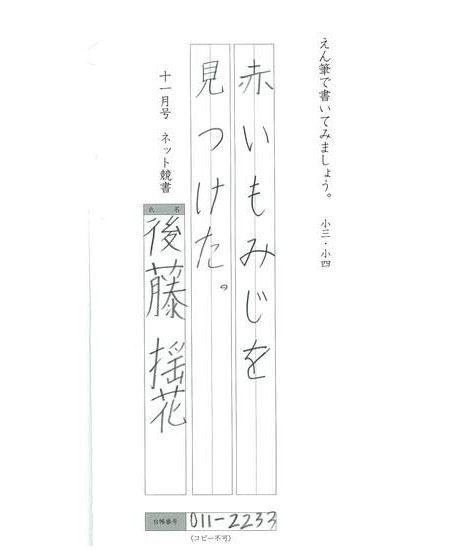 えん筆で書いてみましょう。 小三・小四
赤いもみじを
見つけた。
十一月号 ネット競書
氏名
後藤 揺花
台帳番号 011-2233
(コピー不可)